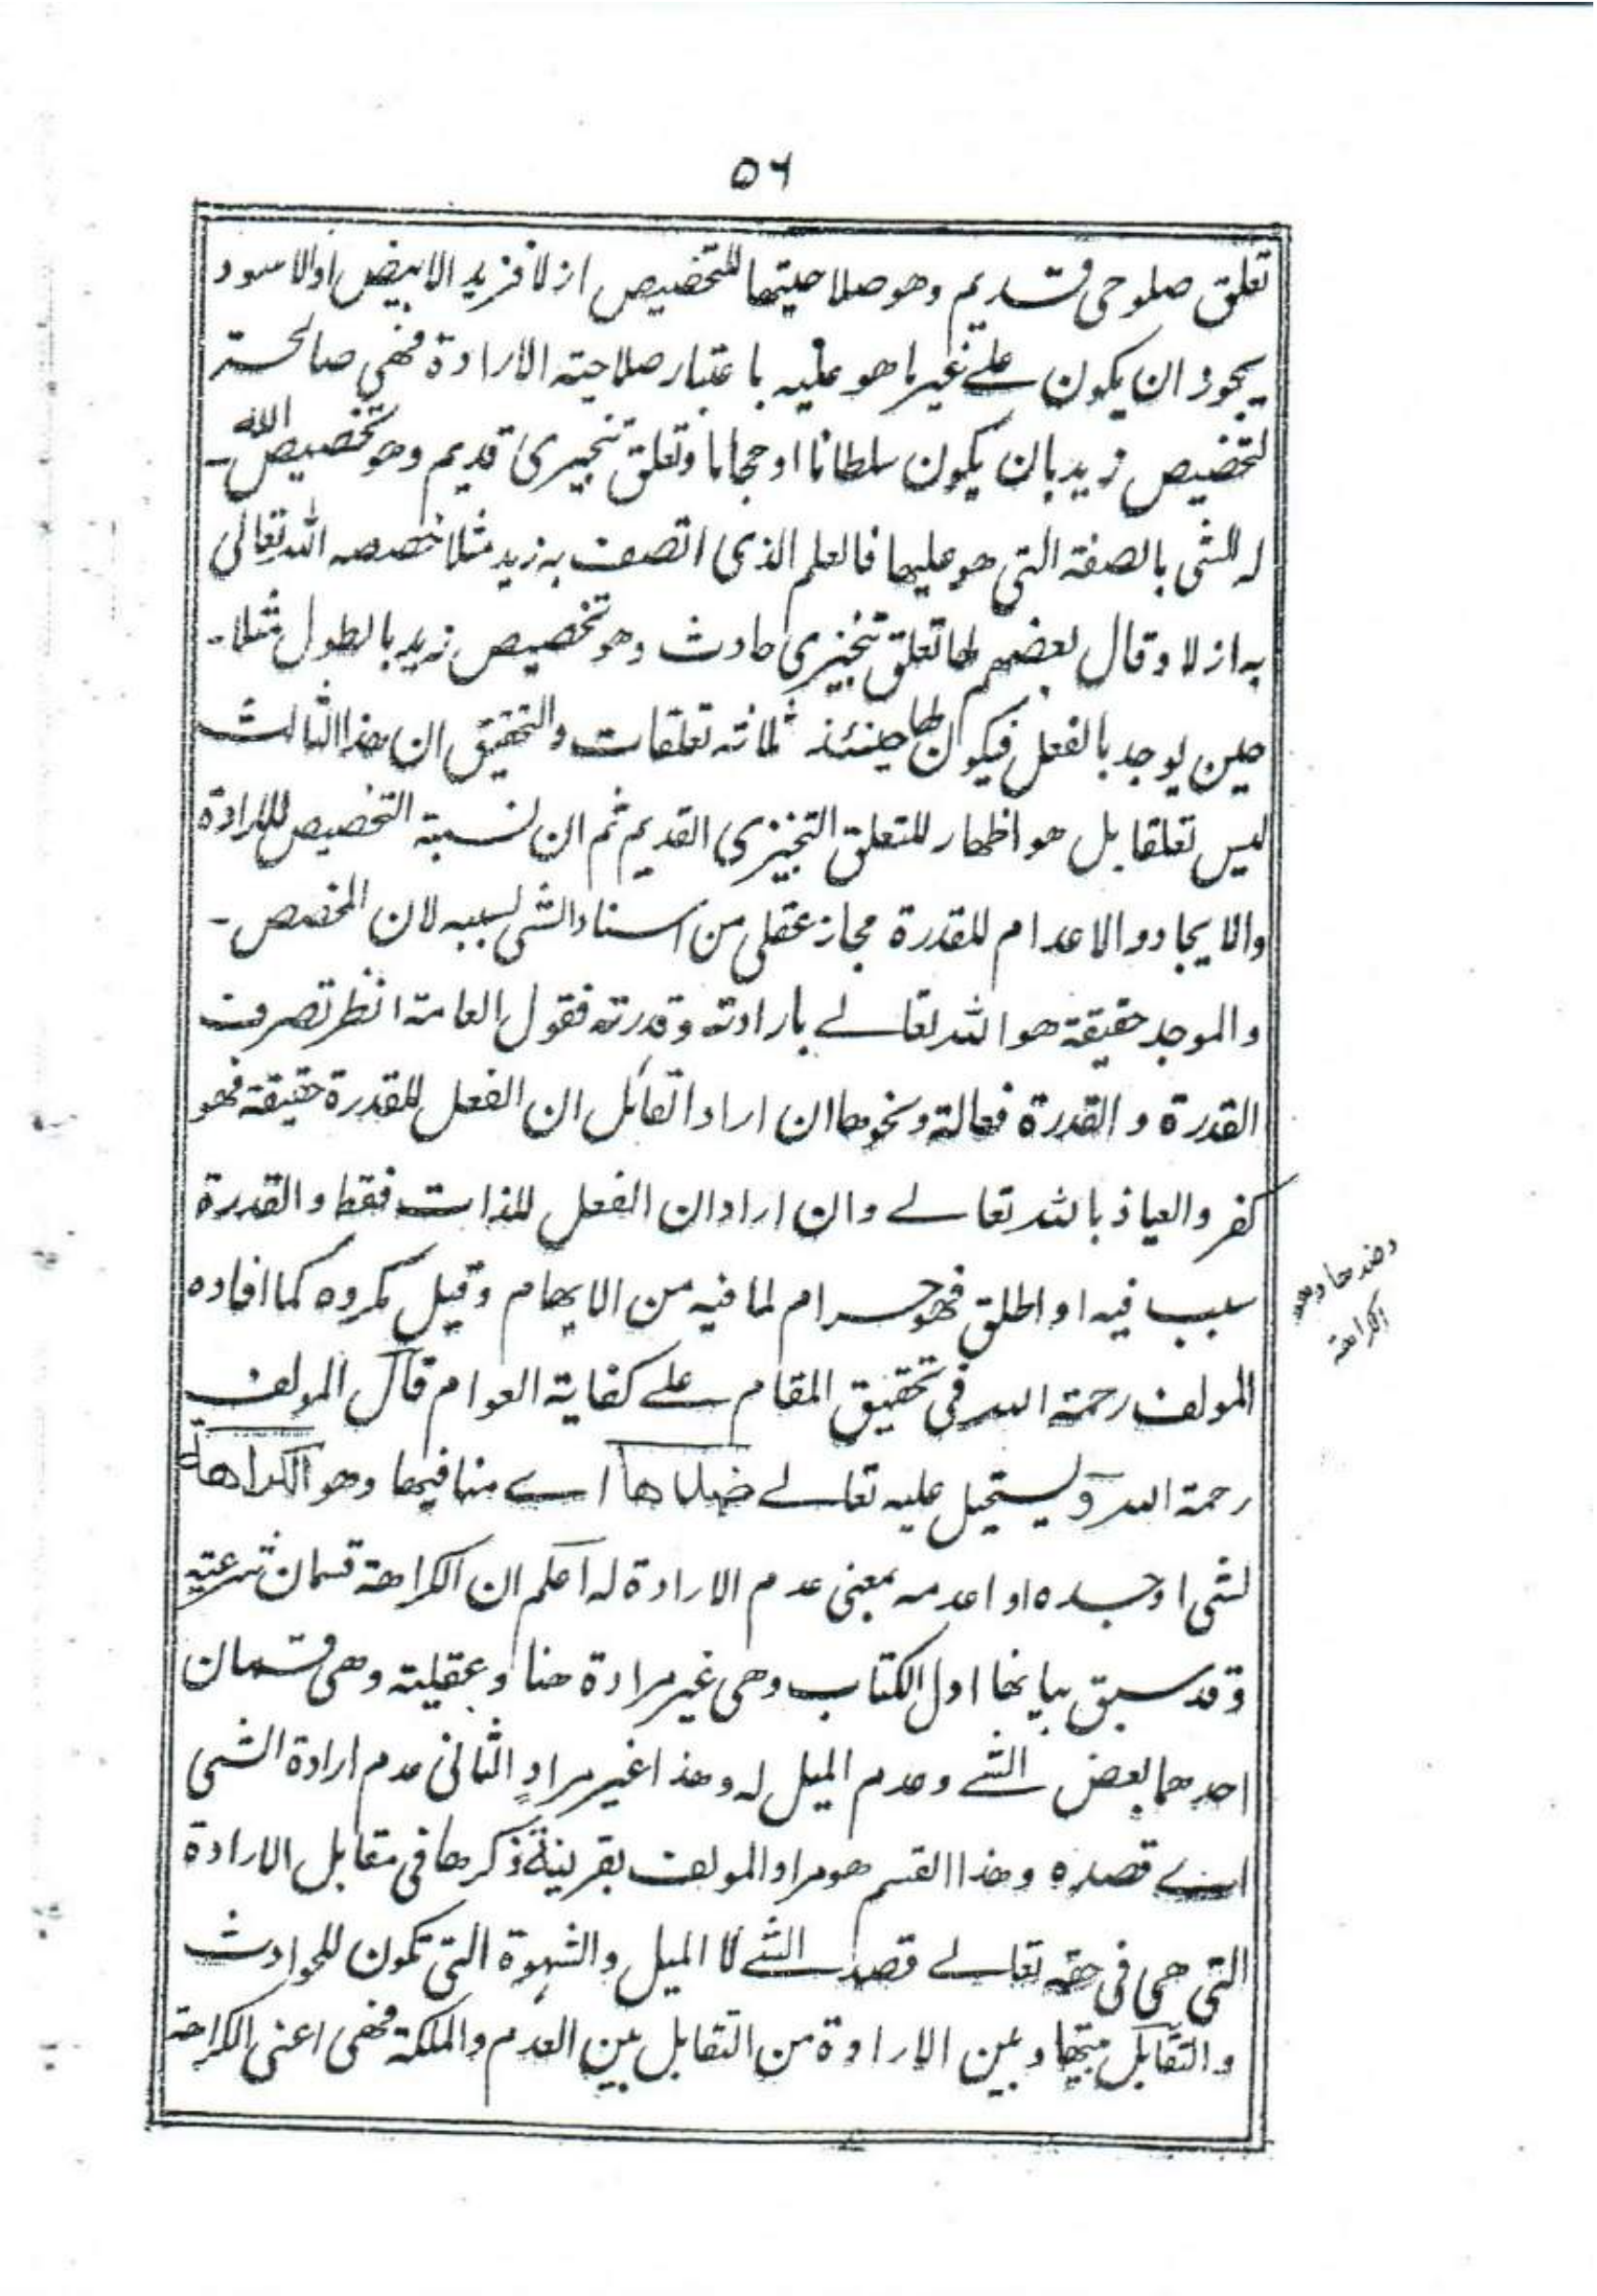 ٥٦
تعلق صلوحى قديم وهو صلاحيتها للتخصيص ازلا فزيد الابيض او الاسود
يجوز ان يكون على غير ما هو عليه باعتبار صلاحية الارادة فهي صالحة
لتخصيص زيد بان يكون سلطانا او حجاما وتعلق تنجيزى قديم وهو تخصيص الله -
له للشى بالصفة التى هو عليها فالعلم الذى اتصف به زيد مثلا خصصه الله تعالى
به ازلا وقال بعضهم لها تعلق تنجيزى حادث وهو تخصيص زيد بالطول مثلا -
حين يوجد بالفعل فيكون لها حينئذ ثلاثة تعلقات والتحقيق ان هذا الثالث
ليس تعلقا بل هو اظهار للتعلق التنجيزى القديم ثم ان نسبة التخصيص للارادة
والايجاد والاعدام للقدرة مجاز عقلى من اسناد الشى لسببه لان المخصص -
والموجد حقيقة هو الله تعالے بارادته وقدرته فقول العامة انظر تصرف
القدرة و القدرة فعالة ونحوها ان اراد القائل ان الفعل للقدرة حقيقة فهو
كفر والعياذ بالله تعالے وان اراد ان الفعل للذات فقط والقدرة
سبب فيه او اطلق فهو حرام لما فيه من الايهام وقيل مكروه كما افاده
المولف رحمة الله فى تحقيق المقام على كفاية العوام قال المولف
رحمة الله ويستحيل عليه تعالے ضدها اے منافيها وهو الكراهة
لشى اوجده او اعدمه بمعنى عدم الارادة له اعلم ان الكراهة قسمان شرعية
وقد سبق بيانها اول الكتاب وهى غير مرادة هنا وعقلية وهى قسمان
احدهما بعض الشے وعدم الميل له وهذا غير مراد الثانى عدم ارادة الشى
اے قصده وهذا القسم هو مراد المولف بقرينة ذكرها فى مقابل الارادة
التى هى فى حقه تعالے قصد الشے لا الميل والشهوة التى تكون للحوادث
والتقابل بينها وبين الارادة من التقابل بين العدم والملكة فهى اعنى الكراهة
وضدها وهو
الكراهة